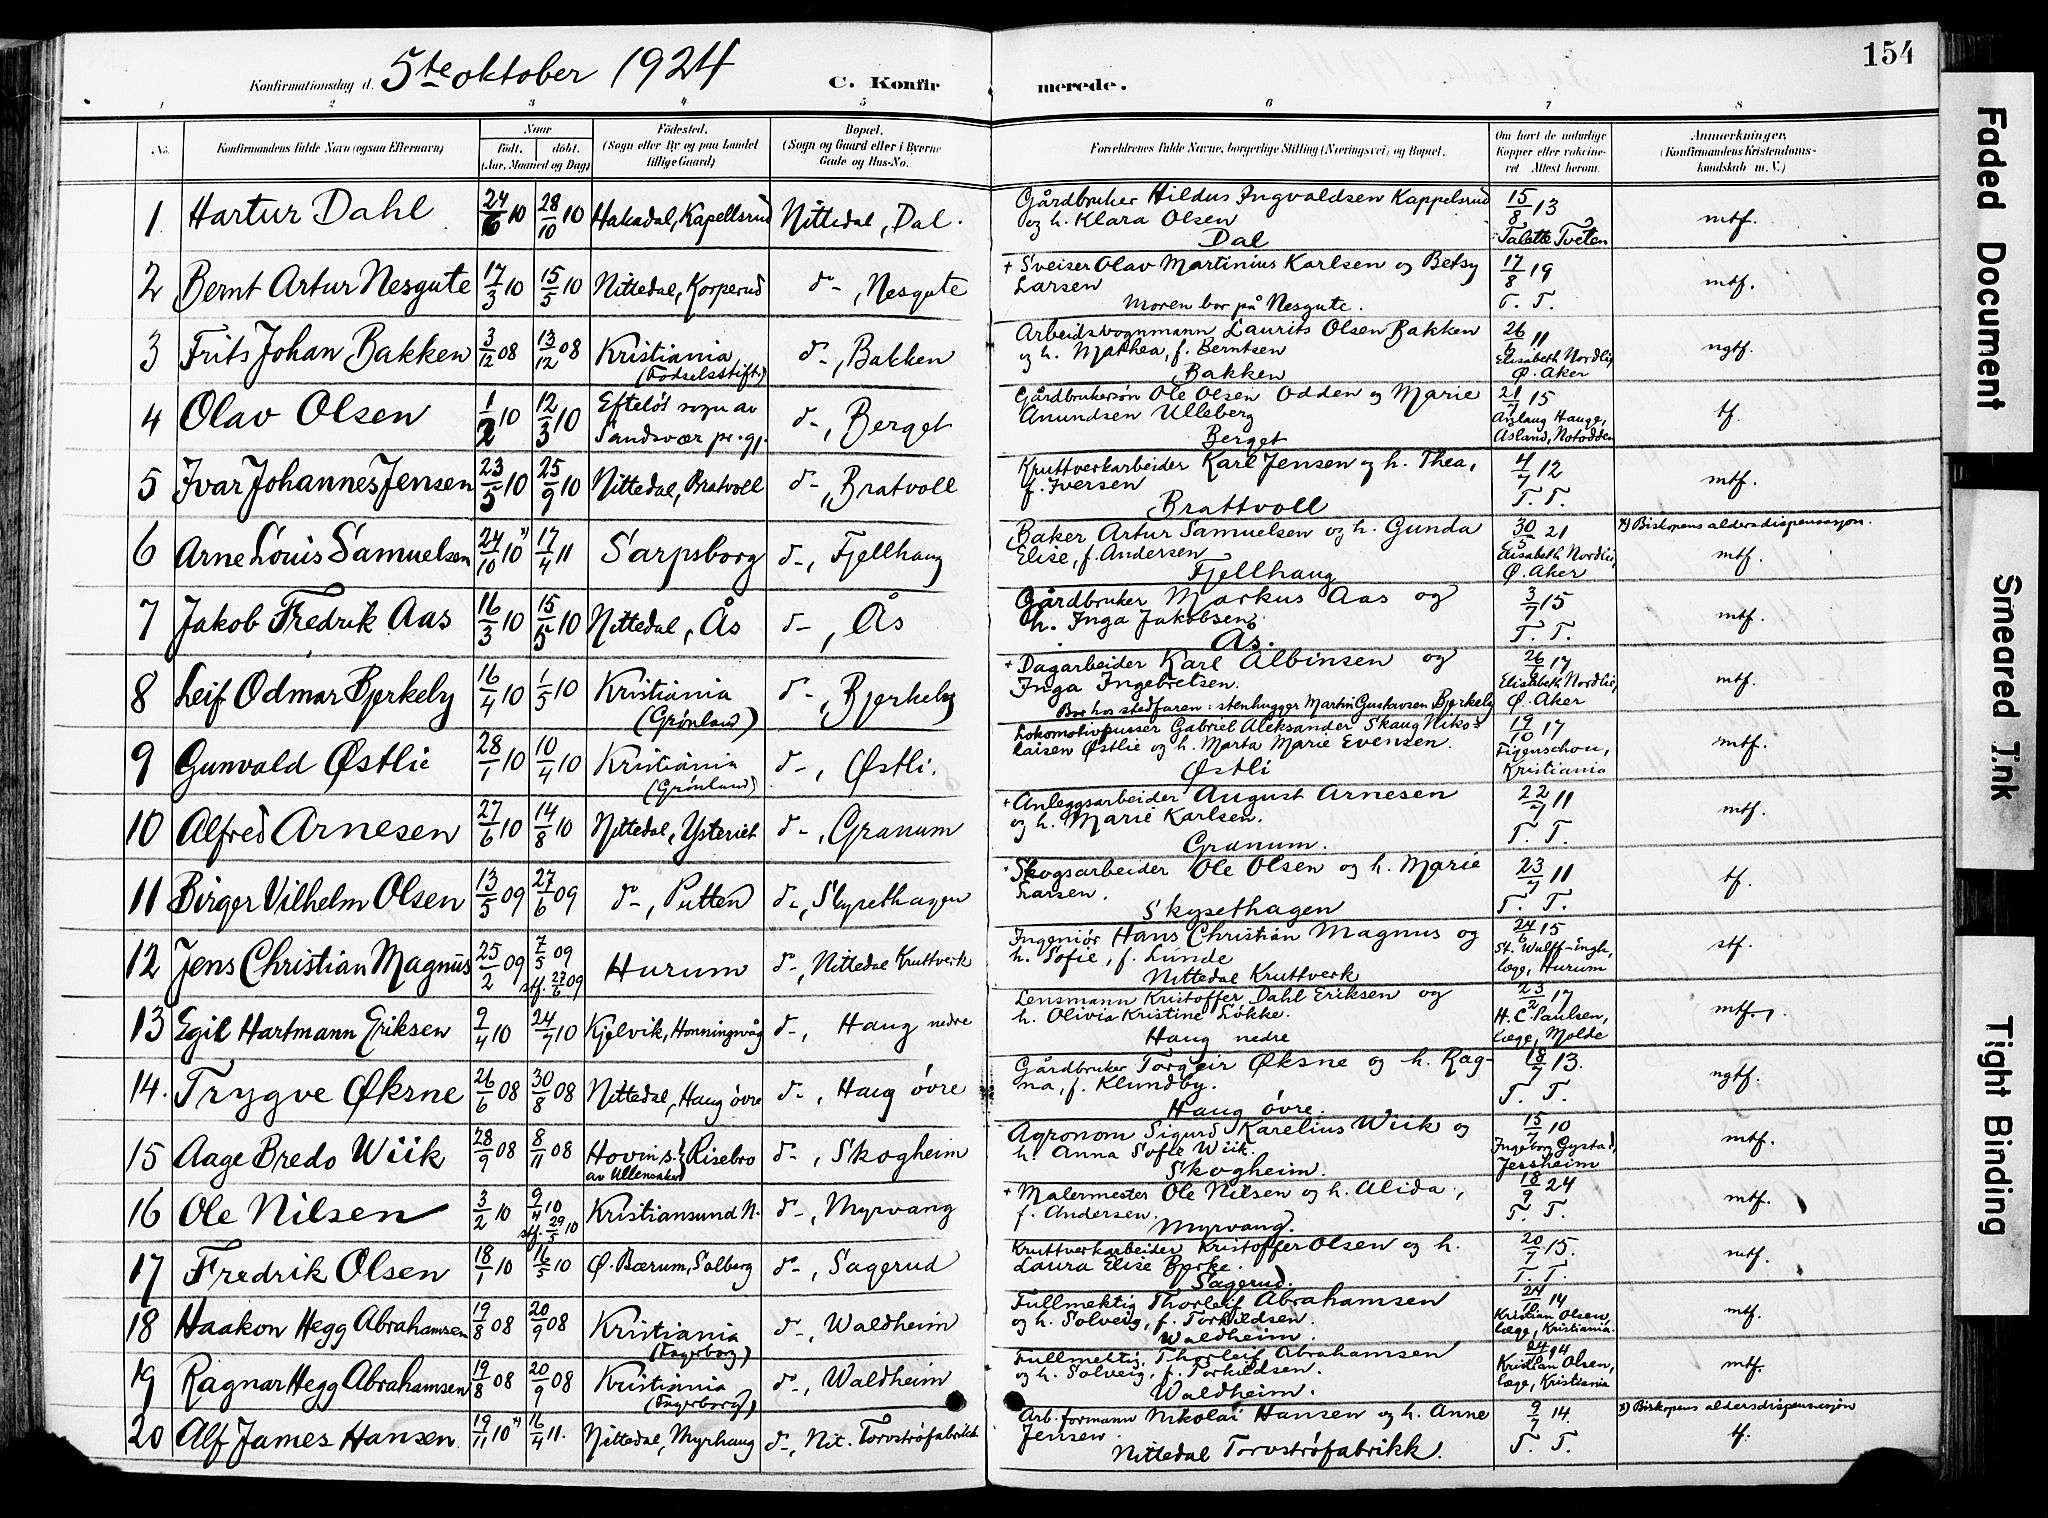 154
Konfirmationsdag d. 5te oktober 1924 C. Konfirmerede.
1 2 3 4 5 6 7 8
No. Konfirmandens fulde Navn (ogsaa Efternavn) Naar født. døbt. (Aar, Maaned og Dag) Fødested. (Sogn eller By og paa Landet tillige Gaard) Bopæl. (Sogn og Gaard eller i Byerne Gade og Hus-No. Forældrenes fulde Navne, borgerlige Stilling (Næringsvei) og Bopæl. Om havt de naturlige Kopper eller vakcineret Attest herom. Anmærkninger. (Konfirmandens Kristendomskundskab m. V.)
1 Hartur Dahl 24/6 10 28/10 10 Hakadal, Kapellsrud Nittedal, Dal. Gårdbruker Hildus Ingvaldsen Kappelsrud og h. Klara Olsen Dal 15/8 13 Talette Tveten mtf.
2 Bernt Artur Nesgute 17/3 10 15/5 10 Nittedal, Korperud d-, Nesgute + Sveiser Olav Martinius Karlsen og Betsy Larsen Moren bor på Nesgute. 17/8 19 T. T. mtf.
3 Frits Johan Bakken 3/12 08 13/12 08 Kristiania (Fødselsstift.) d-, Bakken Arbeidsvognmann Laurits Olsen Bakken og h. Mathea, f. Berntsen Bakken 26/6 11 Elisabeth Nordlie, Ø. Aker ngtf.
4 Olav Olsen 1/2 10 12/3 10 Efteløt sogn av Sandsvær pr.gj. d-, Berget Gårdbrukersøn Ole Olsen Odden og Marie Anundsen Ulleberg Berget 21/7 15 Aslaug Hauge, Åsland, Notodden tf.
5 Ivar Johannes Jensen 23/5 10 25/9 10 Nittedal, Bratvoll d-, Bratvoll Kruttverkarbeider Karl Jensen og h. Thea, f. Iversen Brattvoll 4/7 12 T. T. mtf.
6 Arne Louis Samuelsen 24/10 10 x) 17/4 11 Sarpsborg d-, Fjellhaug Baker Artur Samuelsen og h. Gunda Elise, f. Andersen Fjellhaug 30/5 21 Elisabeth Nordlie, Ø. Aker x) Biskopens aldersdispensasjon. mtf.
7 Jakob Fredrik Aas 16/3 10 15/5 10 Nittedal, Ås d-, Ås Gårdbruker Markus Aas og h. Inga Jakobsen. Ås. 3/7 15 T. T. mtf.
8 Leif Odmar Bjerkely 16/4 10 1/5 10 Kristiania (Grønland) d-, Bjerkely + Dagarbeider Karl Albinsen og Inga Ingebretsen. Bor hos stedfaren: stenhugger Martin Gustavsen Bjerkely 26/6 17 Elisabeth Nordlie, Ø. Aker mtf.
9 Gunvald Østlie 28/1 10 10/4 10 Kristiania (Grønland) d-, Østli. Lokomotivpusser Gabriel Aleksander Skaug Nikolaisen Østlie og h. Marta Marie Evensen. Østli 19/10 17 Figenschou, Kristiania mtf.
10 Alfred Arnesen 27/6 10 14/8 10 Nittedal, Ysteriet d-, Granum + Anleggsarbeider August Arnesen og h. Marie Karlsen. Granum. 22/7 11 T. T. mtf.
11 Birger Vilhelm Olsen 13/5 09 27/6 09 d-, Putten d-, Skysethagen + Skogsarbeider Ole Olsen og h. Marie Larsen. Skysethagen 23/7 11 T. T. tf.
12 Jens Christian Magnus 25/2 09 7/5 09 stf. 27/6 09 Hurum d-, Nittedal Kruttverk Ingeniør Hans Christian Magnus og h. Sofie, f. Lunde Nittedal Kruttverk 24/6 15 St. Wulff-Engh, læge, Hurum stf.
13 Egil Hartmann Eriksen 9/4 10 24/7 10 Kjelvik, Honningsvåg d-, Haug nedre Lensmann Kristoffer Dahl Eriksen og h. Olivia Kristine Løkke. Haug nedre 23/2 17 H. C. Paulsen, læge, Molde mtf.
14. Trygve Øksne 26/6 08 30/8 08 Nittedal, Haug øvre d-, Haug øvre Gårdbruker Torgeir Øksne og h. Ragna, f. Klundby. Haug øvre. 18/7 13. T. T. ngtf.
15 Aage Bredo Wiik 28/9 08 8/11 08 Hovin s. av Ullensaker } Risebro d-, Skogheim Agronom Sigurd Karelius Wiik og h. Anna Sofie Wiik. Skogheim. 15/7 10 Ingeborg Gystad, Jessheim mtf.
16 Ole Nilsen 3/2 10 9/4 10 stf. 29/5 10 Kristiansund N. d-, Myrvang + Malermester Ole Nilsen og h. Alida, f. Andersen. Myrvang. 18/9 24 T. T. mtf.
17 Fredrik Olsen 18/1 10 16/5 10 Ø. Bærum, Solberg d-, Sagerud Kruttverkarbeider Kristoffer Olsen og h. Laura Elise Bjerke. Sagerud. 20/7 15. T. T. mtf.
18 Haakon Hegg Abrahamsen 19/8 08 20/9 08 Kristiania (Fagerborg) d-, Waldheim Fullmektig Thorleif Abrahamsen og h. Solveig, f. Torkildsen. Waldheim. 14 Kristian Olsen, læge, Kristiania. mtf.
19 Ragnar Hegg Abrahamsen 19/8 08 20/9 08 Kristiania (Fagerborg) d-, Waldheim Fullmektig, Thorleif Abrahamsen og h. Solveig, f. Torkildsen. Waldheim. 14 Kristian Olsen, læge, Kristiania mtf.
20 Alf James Hansen 19/11 10 x) 16/4 11. Nittedal, Myrhaug d-, Nit. Torvstrøfabrikk Arb. formann Nikolai Hansen og h. Anne Jensen. Nittedal Torvstrøfabrikk. 9/7 14. T. T. x) Biskopens aldersdispensasjon tf.
Faded Document
Smeared Ink
Tight Binding